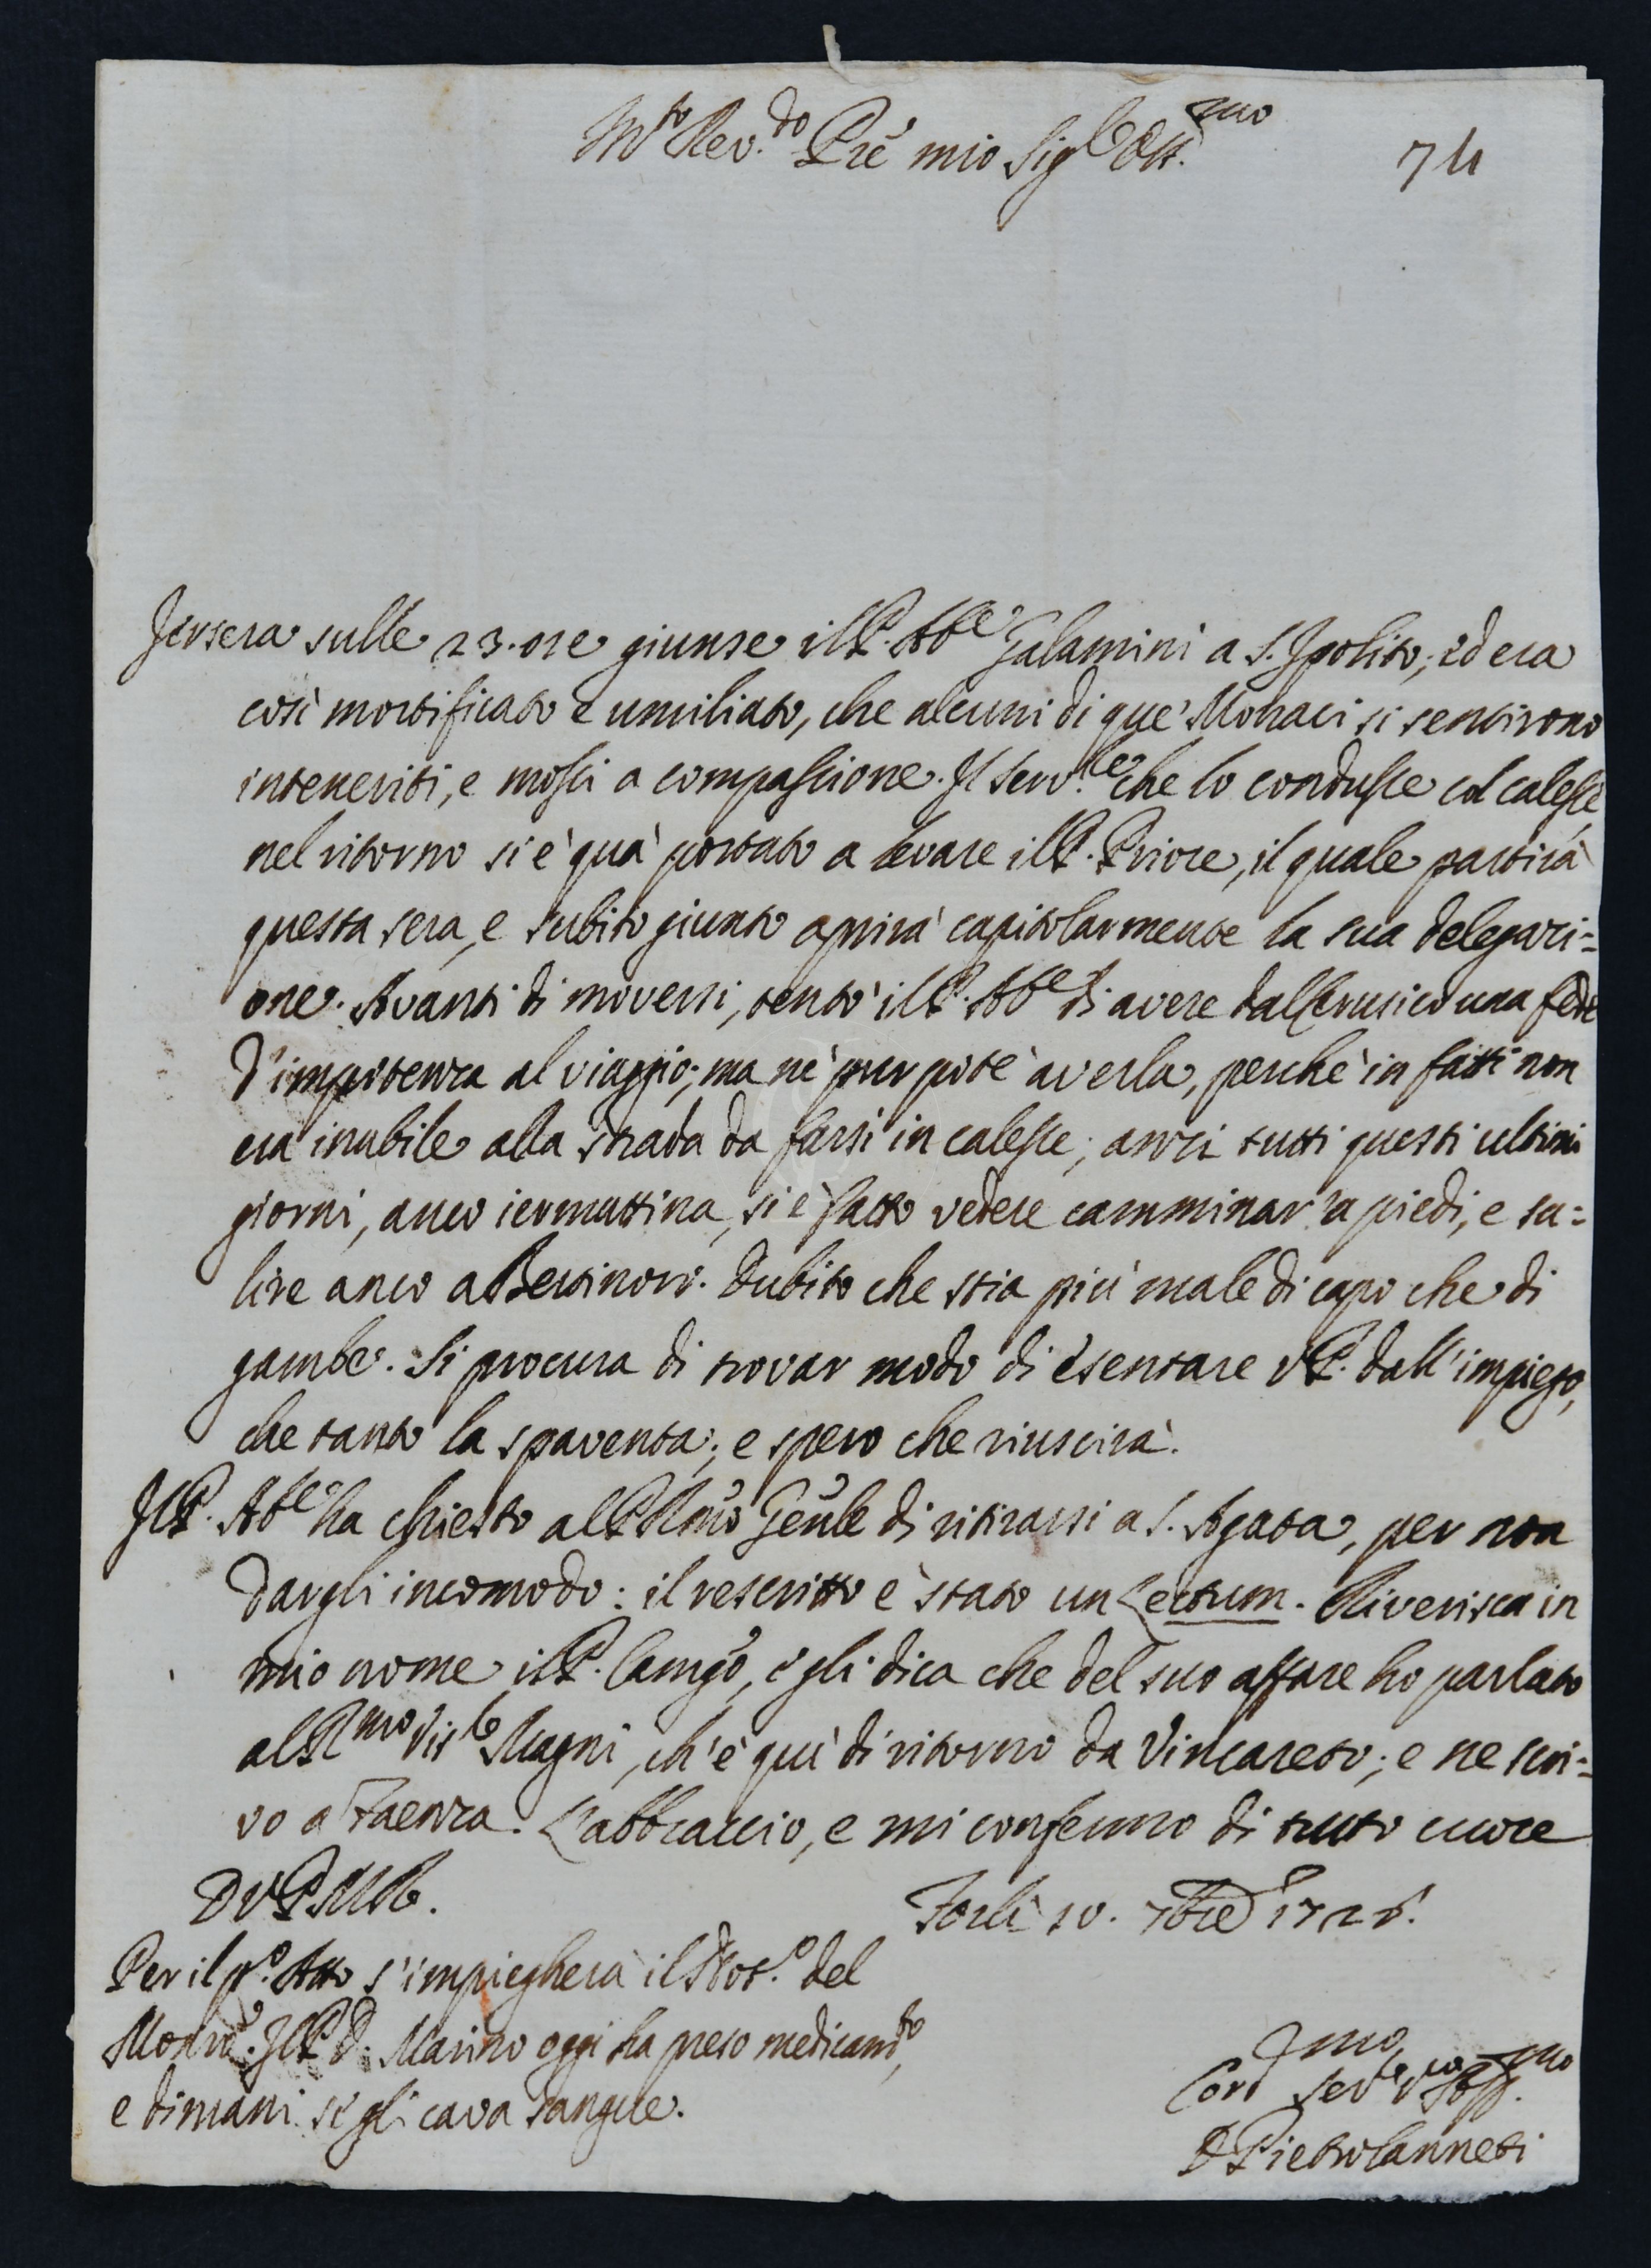 M.to Rev.do Prē mio Sig.e Oss.mo
74
Jersera sulle 23. ore giunse il P. Ab.e Galamini a S. Ipolito; ed era
così mortificato e umiliato, che alcuni di que' Monaci si sentirono
inteneriti, e mossi a compassione. Il Serv.le che lo condusse col calesse
nel ritorno si è quà portato a levare il P. Priore, il quale partirà
questa sera, e subito giunto aprirà capitolarmente la sua delegazi=
one. Avanti di moversi, tentò il P. Ab.e di avere dal Cerusico una fede
d'impotenza al viaggio; ma nè pur potè averla, perchè in fatti non
era inabile alla strada da farsi in calesse; anzi tutti questi ultimi
giorni, anco iermattina, si è fatto vedere camminar a piedi, e sa=
lire anco a Bertinoro. Dubito che stia più male di capo che di
gambe. Si procura di trovar modo di esentare V.P. dall'impiego,
che tanto la spaventa; e spero che riuscirà.
Il P. Ab.e ha chiesto al P. Rmō Gēnle di ritirarsi a S. Agata, per non
dargli incomodo: il rescritto è stato un Lectum. Riverisca in
mio nome il P. Camgō, e gli dica che del suo affare ho parlato
al Rmo Vis.re Magni, ch'è quì di ritorno da Vincareto; e ne scri=
vo a Faenza. L'abbraccio, e mi confermo di tutto cuore
D V P M R.
Forlì 10. 7bre 1725.
Per il p.o Atto s'impiegherà il Not.o del
Monrō. Il P. D. Marino oggi ha preso medicam.to,
e dimani se gli cava sangue.
D. Pietro Canneti